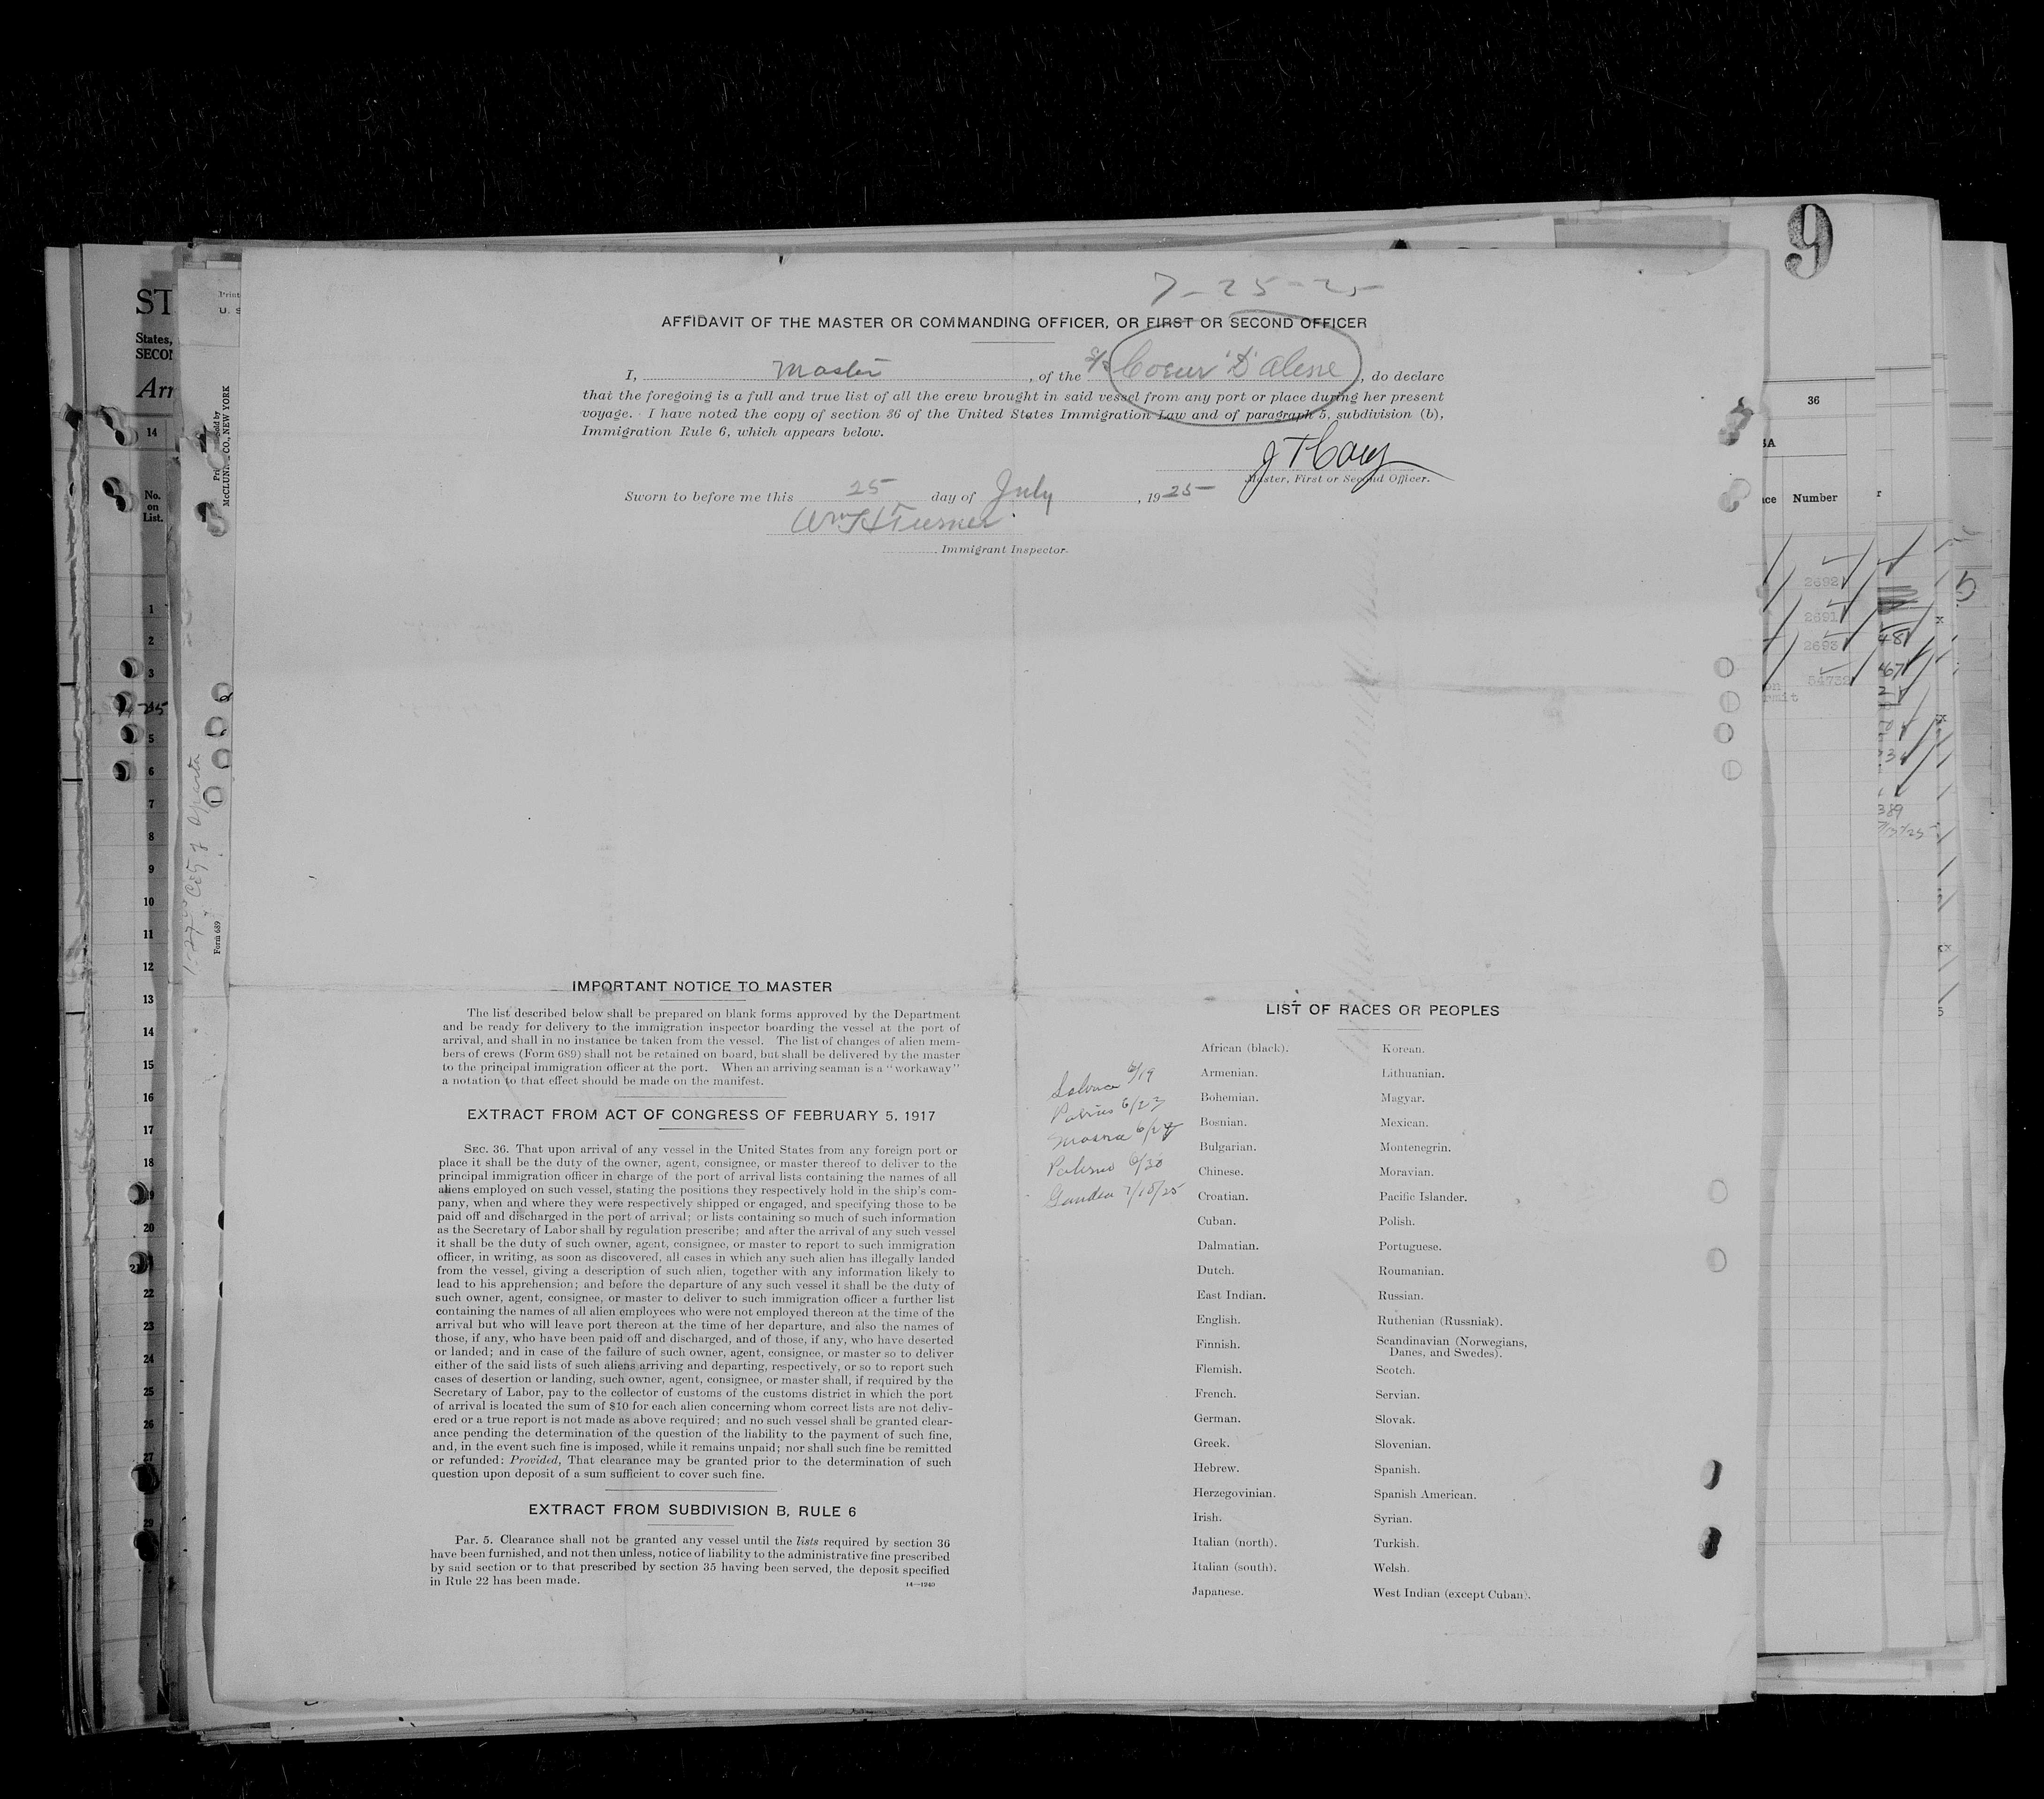 9
7-25-25
AFFIDAVIT OF THE MASTER OR COMMANDING OFFICER, OR FIRST OR SECOND OFFICER
I, Master, of the S/S Coeur 'D' Alene, do declare
that the foregoing is a full and true list of all the crew brought in said vessel from any port or place during her present
voyage. I have noted the copy of section 36 of the United States Immigration Law and of paragraph 5, subdivision (b),
Immigration Rule 6, which appears below.
Master, First or Second Officer.
Sworn to before me this 25 day of July, 1925
Wm H Turner
Immigrant Inspector.
IMPORTANT NOTICE TO MASTER
The list described below shall be prepared on blank forms approved by the Department
and be ready for delivery to the immigration inspector boarding the vessel at the port of
arrival, and shall in no instance be taken from the vessel. The list of changes of alien mem-
bers of crews (Form 689) shall not be retained on board, but shall be delivered by the master
to the principal immigration officer at the port. When an arriving seaman is a "workaway"
a notation to that effect should be made on the manifest.
EXTRACT FROM ACT OF CONGRESS OF FEBRUARY 5, 1917
SEC. 36. That upon arrival of any vessel in the United States from any foreign port or
place it shall be the duty of the owner, agent, consignee, or master thereof to deliver to the
principal immigration officer in charge of the port of arrival lists containing the names of all
aliens employed on such vessel, stating the positions they respectively hold in the ship's com-
pany, when and where they were respectively shipped or engaged, and specifying those to be
paid off and discharged in the port of arrival; or lists containing so much of such information
as the Secretary of Labor shall by regulation prescribe; and after the arrival of any such vessel
it shall be the duty of such owner, agent, consignee, or master to report to such immigration
officer, in writing, as soon as discovered, all cases in which any such alien has illegally landed
from the vessel, giving a description of such alien, together with any information likely to
lead to his apprehension; and before the departure of any such vessel it shall be the duty of
such owner, agent, consignee, or master to deliver to such immigration officer a further list
containing the names of all alien employees who were not employed thereon at the time of the
arrival but who will leave port thereon at the time of her departure, and also the names of
those, if any, who have been paid off and discharged, and of those, if any, who have deserted
or landed; and in case of the failure of such owner, agent, consignee, or master so to deliver
either of the said lists of such aliens arriving and departing, respectively, or so to report such
cases of desertion or landing, such owner, agent, consignee, or master shall, if required by the
Secretary of Labor, pay to the collector of customs of the customs district in which the port
of arrival is located the sum of $10 for each alien concerning whom correct lists are not deliv-
ered or a true report is not made as above required; and no such vessel shall be granted clear-
ance pending the determination of the question of the liability to the payment of such fine,
and, in the event such fine is imposed, while it remains unpaid; nor shall such fine be remitted
or refunded: Provided, That clearance may be granted prior to the determination of such
question upon deposit of a sum sufficient to cover such fine.
EXTRACT FROM SUBDIVISION B, RULE 6
Par. 5. Clearance shall not be granted any vessel until the lists required by section 36
have been furnished, and not then unless, notice of liability to the administrative fine prescribed
by said section or to that prescribed by section 35 having been served, the deposit specified
in Rule 22 has been made.
14—1240
6/19
6/23
6/30
7/18/25
LIST OF RACES OR PEOPLES
African (black).
Armenian.
Bohemian.
Bosnian.
Bulgarian.
Chinese.
Croatian.
Cuban.
Dalmatian.
Dutch.
East Indian.
English.
Finnish.
Flemish.
French.
German.
Greek.
Hebrew.
Herzegovinian.
Irish.
Italian (north).
Italian (south).
Japanese.
Korean.
Lithuanian.
Magyar.
Mexican.
Montenegrin.
Moravian.
Pacific Islander.
Polish.
Portuguese.
Roumanian.
Russian.
Ruthenian (Russniak).
Scandinavian (Norwegians,
Danes, and Swedes).
Scotch.
Servian.
Slovak.
Slovenian.
Spanish.
Spanish American.
Syrian.
Turkish.
Welsh.
West Indian (except Cuban).
States,
14
No.
on
List.
1
2
3
5
6
7
8
9
10
11
12
13
14
15
16
17
18
20
22
23
24
25
26
27
CO., NEW YORK
Form 689
36
Number
2692
2691
2693
54732
389